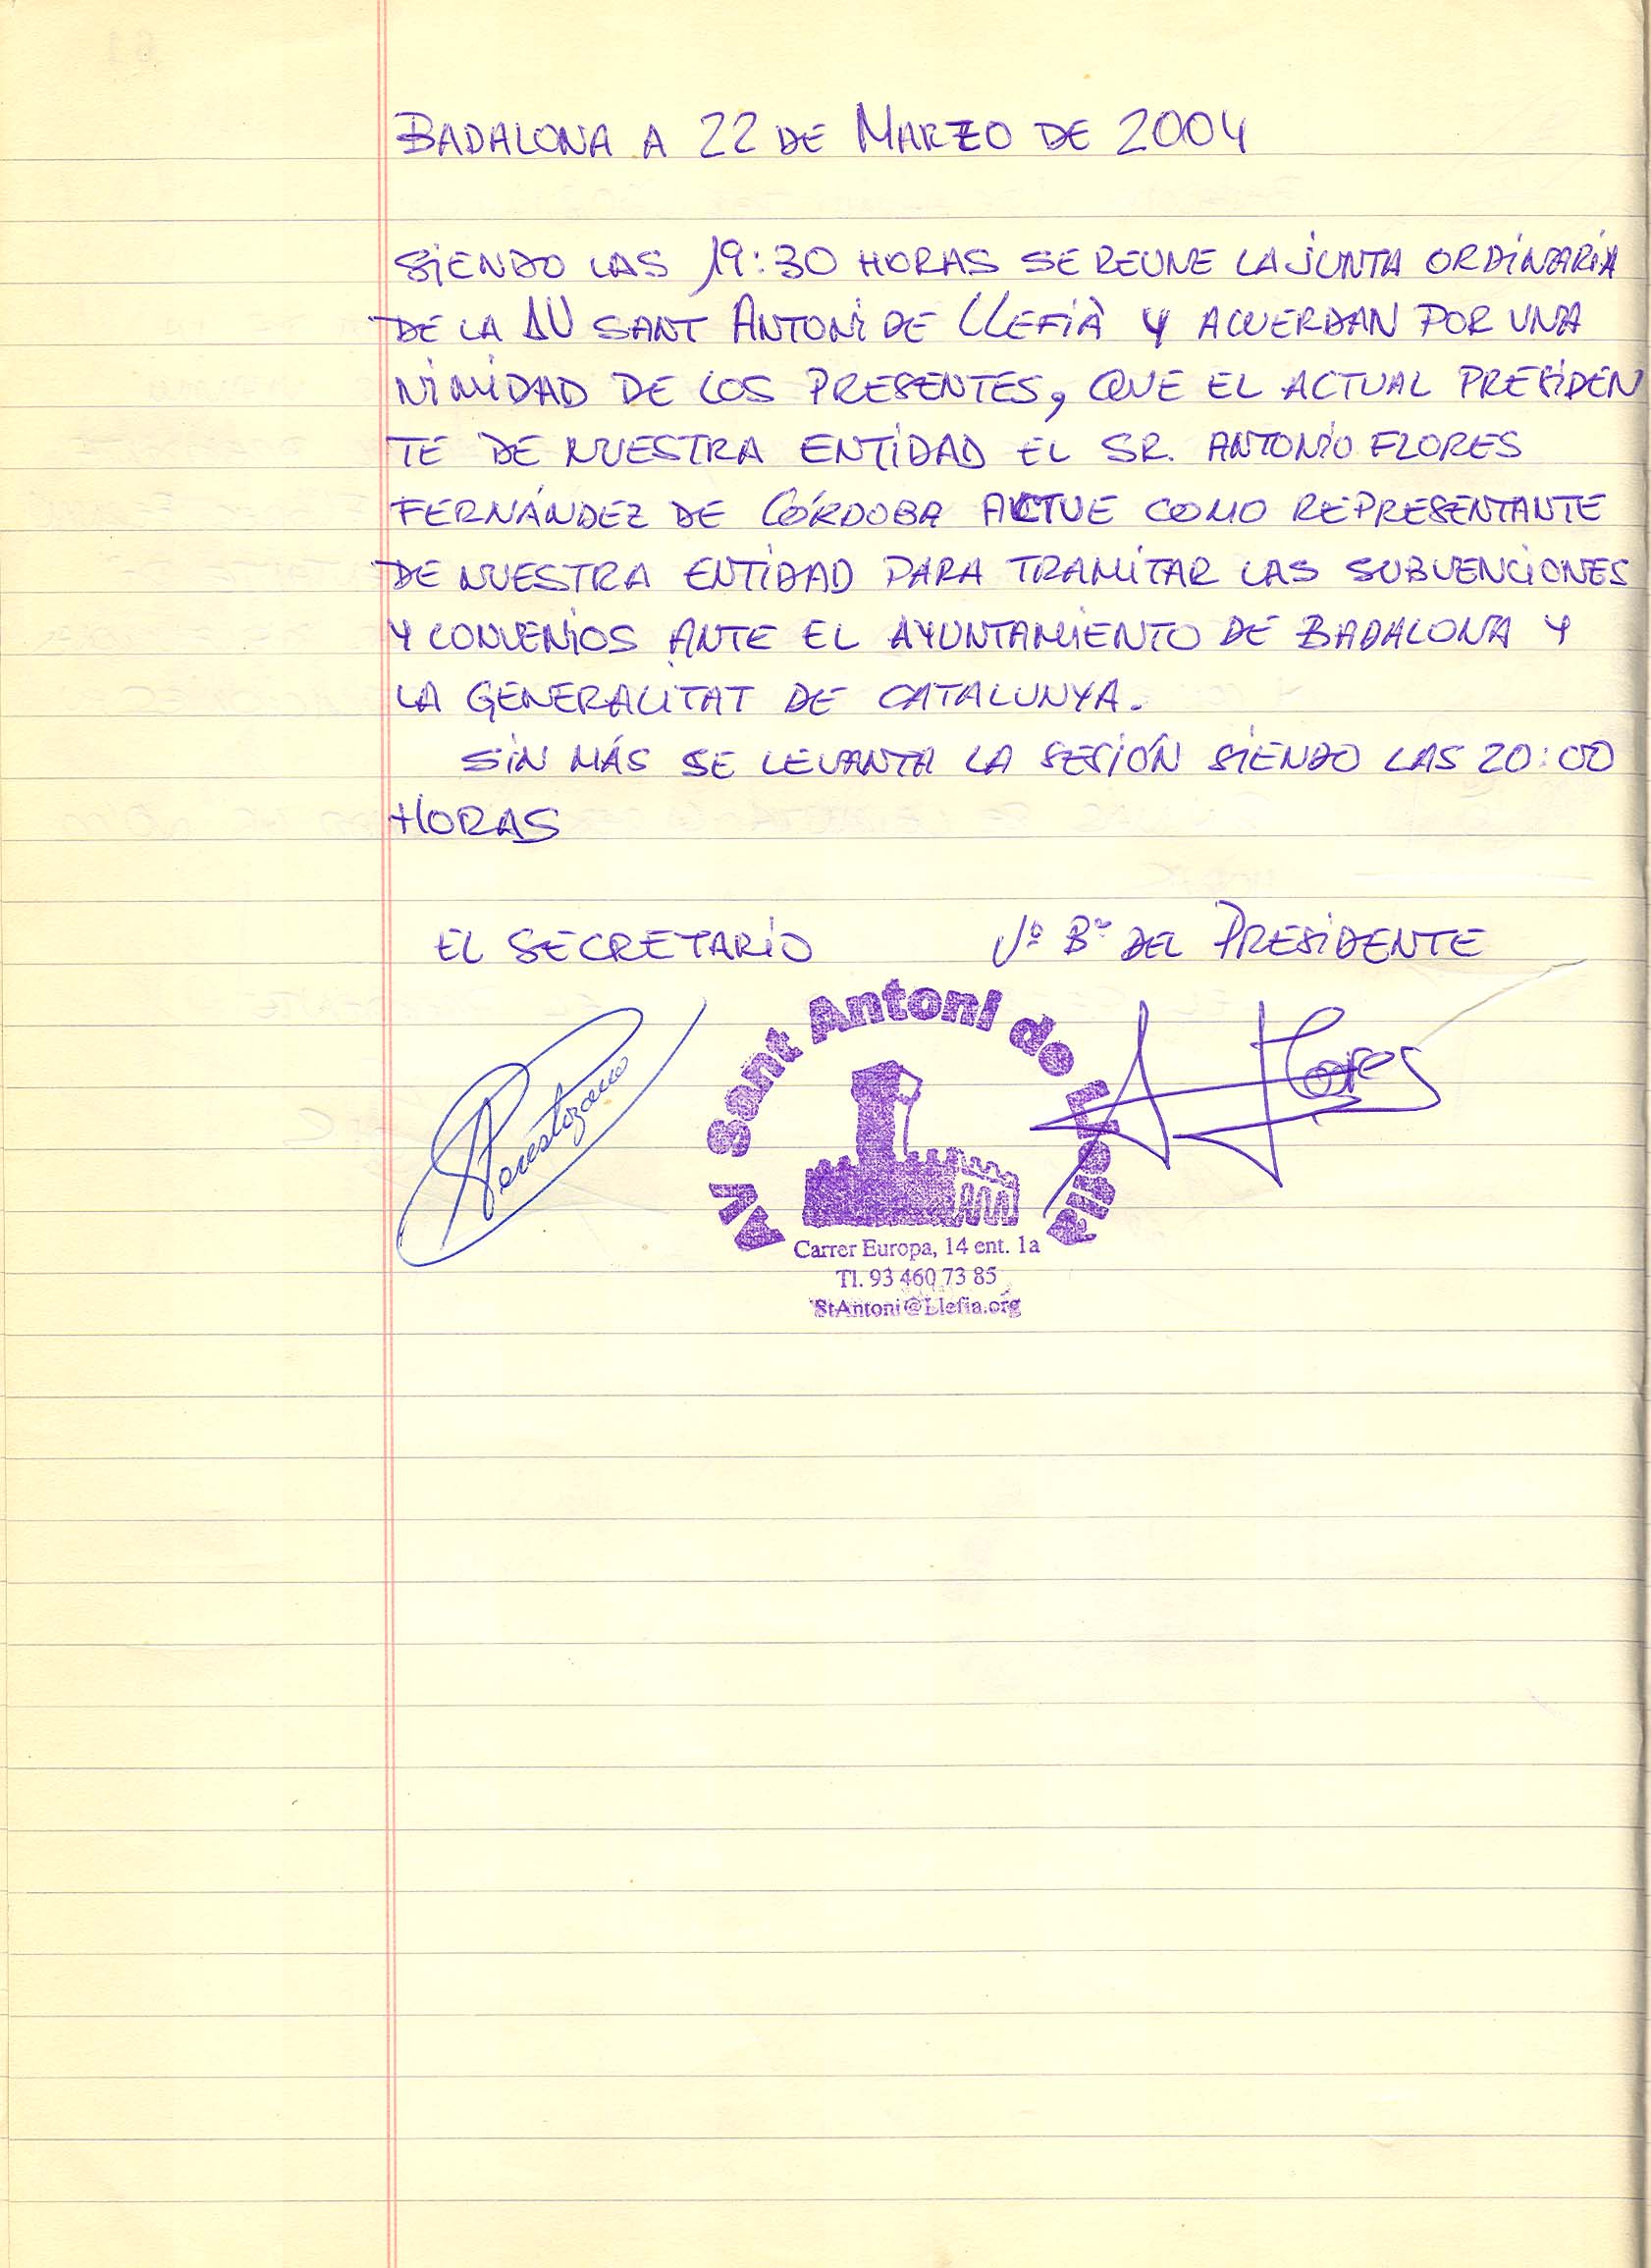 BADALONA A 22 DE MARZO DE 2004
SIENDO LAS 19:30 HORAS SE REUNE LA JUNTA ORDINARIA
DE LA AV SANT ANTONI DE LLEFIÀ Y ACUERDAN POR UNA
NIMIDAD DE LOS PRESENTES, QUE EL ACTUAL PRESIDEN
TE DE NUESTRA ENTIDAD EL SR. ANTONIO FLORES
FERNÁNDEZ DE CÓRDOBA ACTUE COMO REPRESENTANTE
DE NUESTRA ENTIDAD PARA TRAMITAR LAS SUBVENCIONES
Y CONVENIOS ANTE EL AYUNTAMIENTO DE BADALONA Y
LA GENERALITAT DE CATALUNYA.
SIN MÁS SE LEVANTA LA SESIÓN SIENDO LAS 20:00
HORAS
EL SECRETARIO Vº Bº DEL PRESIDENTE
AV Sant Antoni de Llefià
A. Flores
Carrer Europa, 14 ent. 1a
Tl. 93 460 73 85
StAntoni@Llefia.org